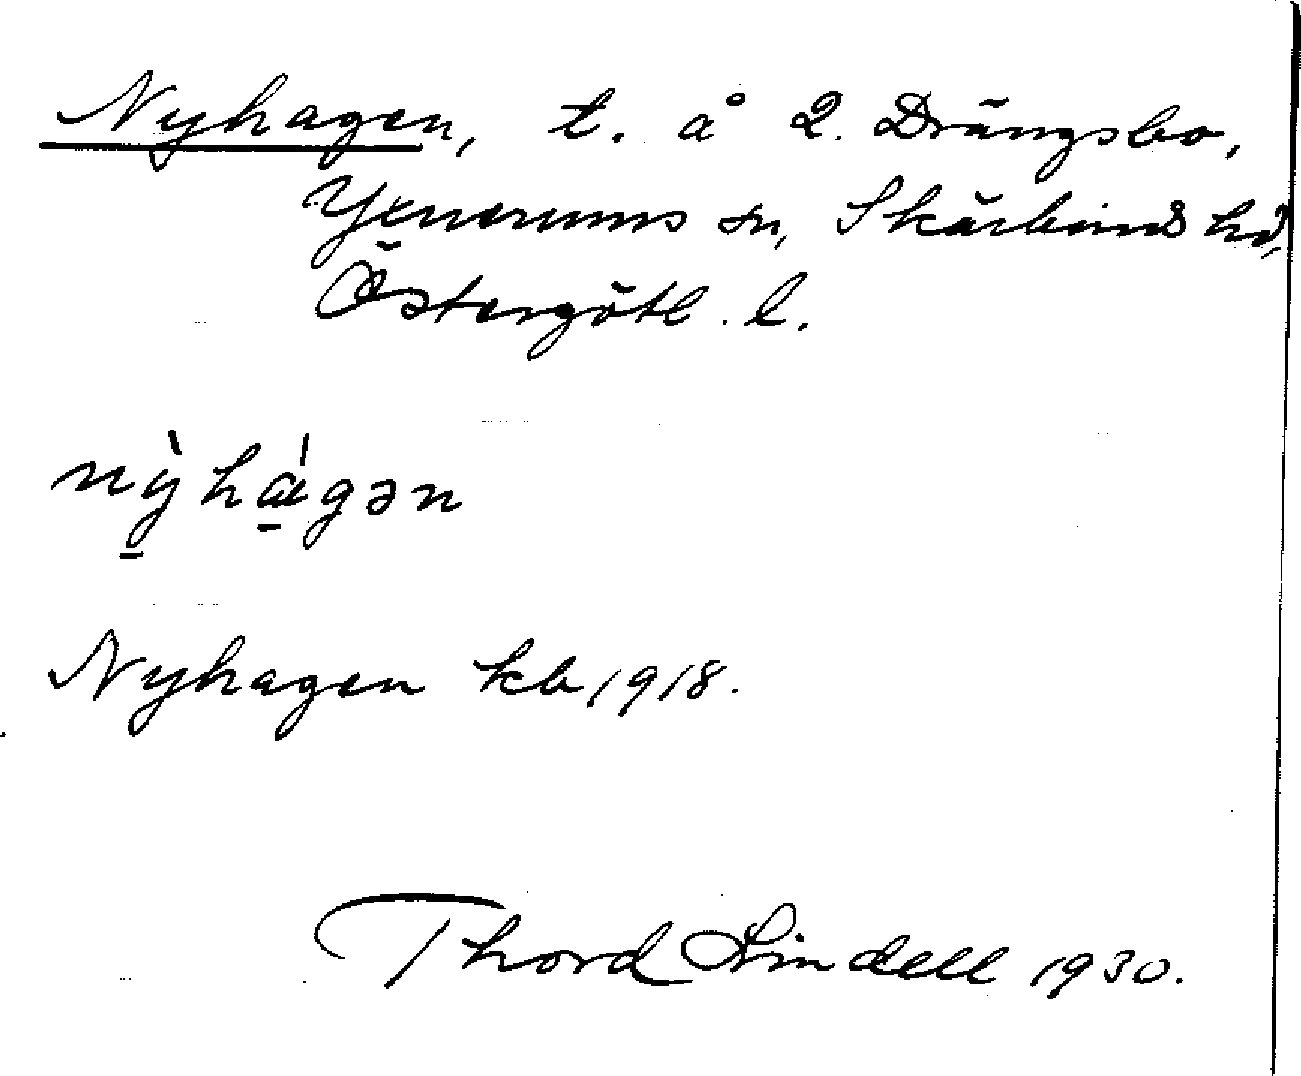 Nyhagen, t. å 2. Drängsbo,
Yxnerums sn, Skärkinds hd,
Östergötl. l.
nỳ̠há̠gən
Nyhagen kb 1918.
Thord Lindell 1930.